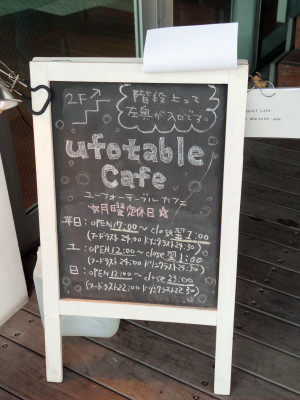 2F
階段上って
左奥が入口です。
ufotable
Cafe
ユーフォーテーブル カフェ
毎月曜定休日☆
平日:OPEN 17:00~close 翌1:00
(フードラスト24:00 ドリンクラスト24:30)
土:OPEN 12:00~close 翌1:00
(フードラスト24:00 ドリンクラスト24:30)
日:OPEN 12:00~close 23:00
(フードラスト22:00 ドリンクラスト22:30)